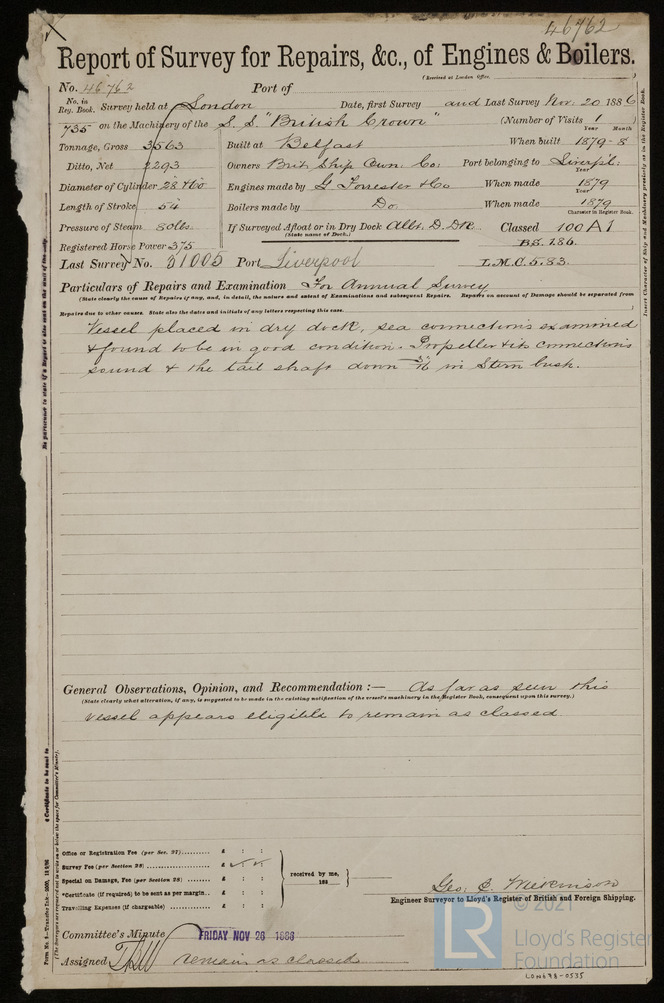 46762
Report of Survey for Repairs, &c., of Engines & Boilers.
(Received at London Office.
No. 46762 Port of
No. in Reg. Book. Survey held at London Date, first Survey and Last Survey Nov. 20 1886
735 on the Machinery of the S.S. "British Crown" (Number of Visits 1)
Year Month
Tonnage, Gross 3563 Built at Belfast When built 1879-8
Ditto, Net 2293 Owners Brit Ship Own: Co: Port belonging to Liverpl:
Year
Diameter of Cylinder 28 & 60 Engines made by G Forrester & Co When made 1879
Year
Length of Stroke 54 Boilers made by Do When made 1879
Character in Register Book.
Pressure of Steam 80lbs If Surveyed Afloat or in Dry Dock Albt. D. Dk Classed 100A1
(State name of Dock.)
Registered Horse Power 375 BS. 1.86.
Last Survey No. 31005 Port Liverpool L.M.C. 5.83.
Particulars of Repairs and Examination For Annual Survey
(State clearly the cause of Repairs if any, and, in detail, the nature and extent of Examinations and subsequent Repairs. Repairs on account of Damage should be separated from
Repairs due to other causes. State also the dates and initials of any letters respecting this case.
Vessel placed in dry dock, sea connections examined
& found to be in good condition. Propeller & its connections
sound & the tail shaft down 3/16 in Stern bush.
General Observations, Opinion, and Recommendation :— As far as seen this
(State clearly what alteration, if any, is suggested to be made in the existing notification of the vessel's machinery in the Register Book, consequent upon this survey.)
vessel appears eligible to remain as classed
Office or Registration Fee (per Sec. 27)......... £ : :
Survey Fee (per Section 28)......... £ : :
Special on Damage, Fee (per Section 28) ...... £ : :
Certificate (if required) to be sent as per margin.. £ : :
Travelling Expenses (if chargeable) ............ £ : :
received by me,
188
Geo: E.
Engineer Surveyor to Lloyd's Register of British and Foreign Shipping.
Committee's Minute FRIDAY NOV 26 1886
Assigned remain as classed
Insert Character of Ship and Machinery precisely as in the Register Book.
© 2021
LR
Lloyd's Register
Foundation
LON698-0535